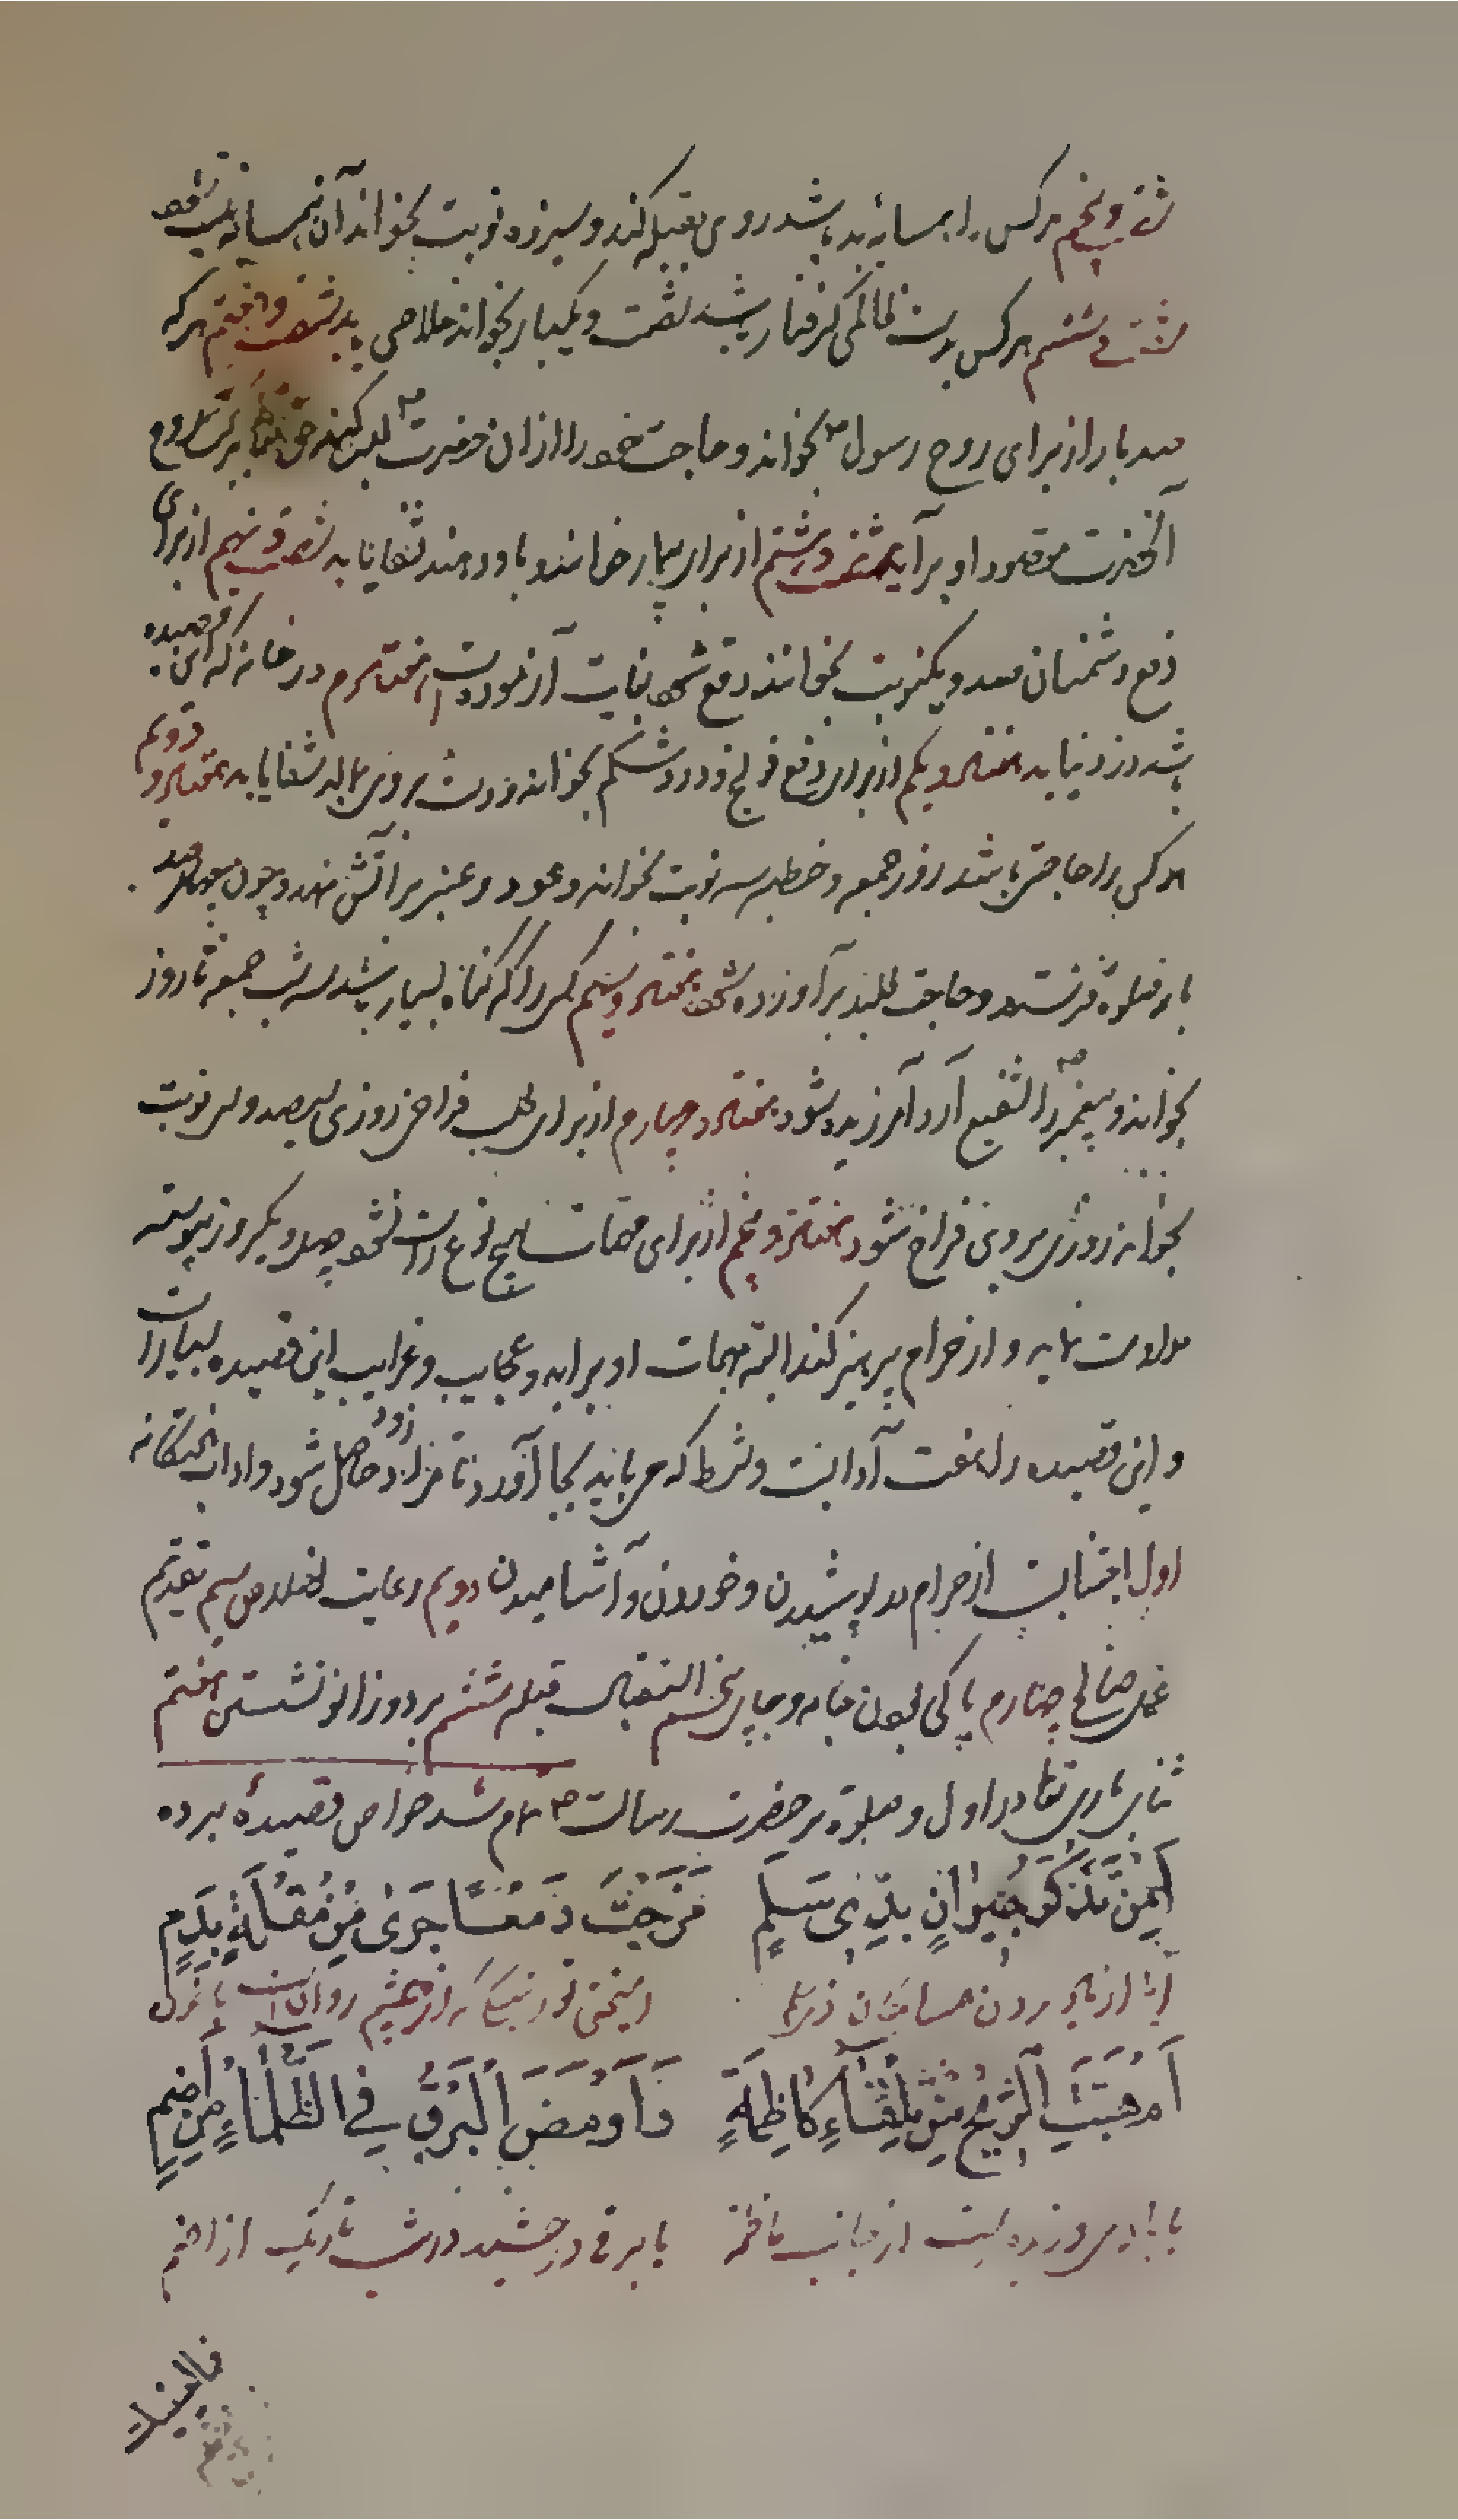 شصت و پنجم هر کس را همسایه بد باشد روی بقبله کند و سیزده نوبت بخواند آن همسایه نیست شود
شصت و ششم هر کس بدست ظالمی گرفتار باشد شصت و یکبار بخواند خلاصی یابد شصت و هفتم هر که
صد بار از برای روح رسول بخواند و حاجت خود را از ان حضرت طلب کند حق تعالی ببرکت روح
آنحضرت مقصود او برآید شصت و هشتم از برای بیمار خوانند و باو دمند شفا یابد شصت و نهم از برای
دفع دشمنان صد و یکنوبت بخوانند دفع شود بغایت آزموده است هفتادم در خانه که این قصیده
باشد دزد نیابد هفتاد و یکم از برای دفع قولنج و درد شکم بخواند و دست بروی مالد شفا یابد هفتاد و دویم
هر کی را حاجتی باشد روز جمعه و خطبه سه نوبت بخواند و عود و عنبر بر آتش نهد و چون
بار صلوة فرستد و حاجت طلبد برآورده شود هفتاد و سیم کسی را که گناه بسیار باشد سه شب جمعه تا روز
بخواند و پیغمبر را شفیع آرد آمرزیده شود هفتاد و چهارم از برای طلب فراخی روزی سیصد و نوبت
بخواند روزی بروی فراخ شود هفتاد و پنجم از برای مهمات بهیچ نوع راست نشود چهل و یکروز پیوسته
مداومت نماید و از حرام پرهیز کند البته مهمات او براید و عجایب و غرایب این قصیده بسیار است
و این قصیده را هفت آدابست و شرط که می باید بجا آورد تا مراد زود حاصل شود و اداب هفتگانه
اول اجتنابست از حرام در پوشیدن و خوردن و آشامیدن دویم رعایت اخلاص سیم تقدیم
عمل صالح چهارم پاکی بودن جامه و جای پنجم استقبال قبله ششم بر دو زانو نشستن هفتم
ثنای باری تعالی در اول و صلوة بر حضرت رسالت تمام شد خواص قصیدهٔ برده
اَمِنْ تَذَكُّرِ جِيرَانٍ بِذِي سَلَمٍ مَزَجْتَ دَمْعًا جَرَىٰ مِنْ مُقْلَةٍ بِدَمٍ
آیا از یاد کردن همسایگان ذی سلم امیختی تو اشکی که از چشم روان است با خون
اَمْ هَبَّتِ الرِّيحُ مِنْ تِلْقَاءِ كَاظِمَةٍ وَاَوْمَضَ الْبَرْقُ فِي الظَّلْمَاءِ مِنْ اِضَمٍ
یا باد می وزیده است از جانب کاظمه یا برقی درخشید در شب تاریک از اضم
فما لعینیک